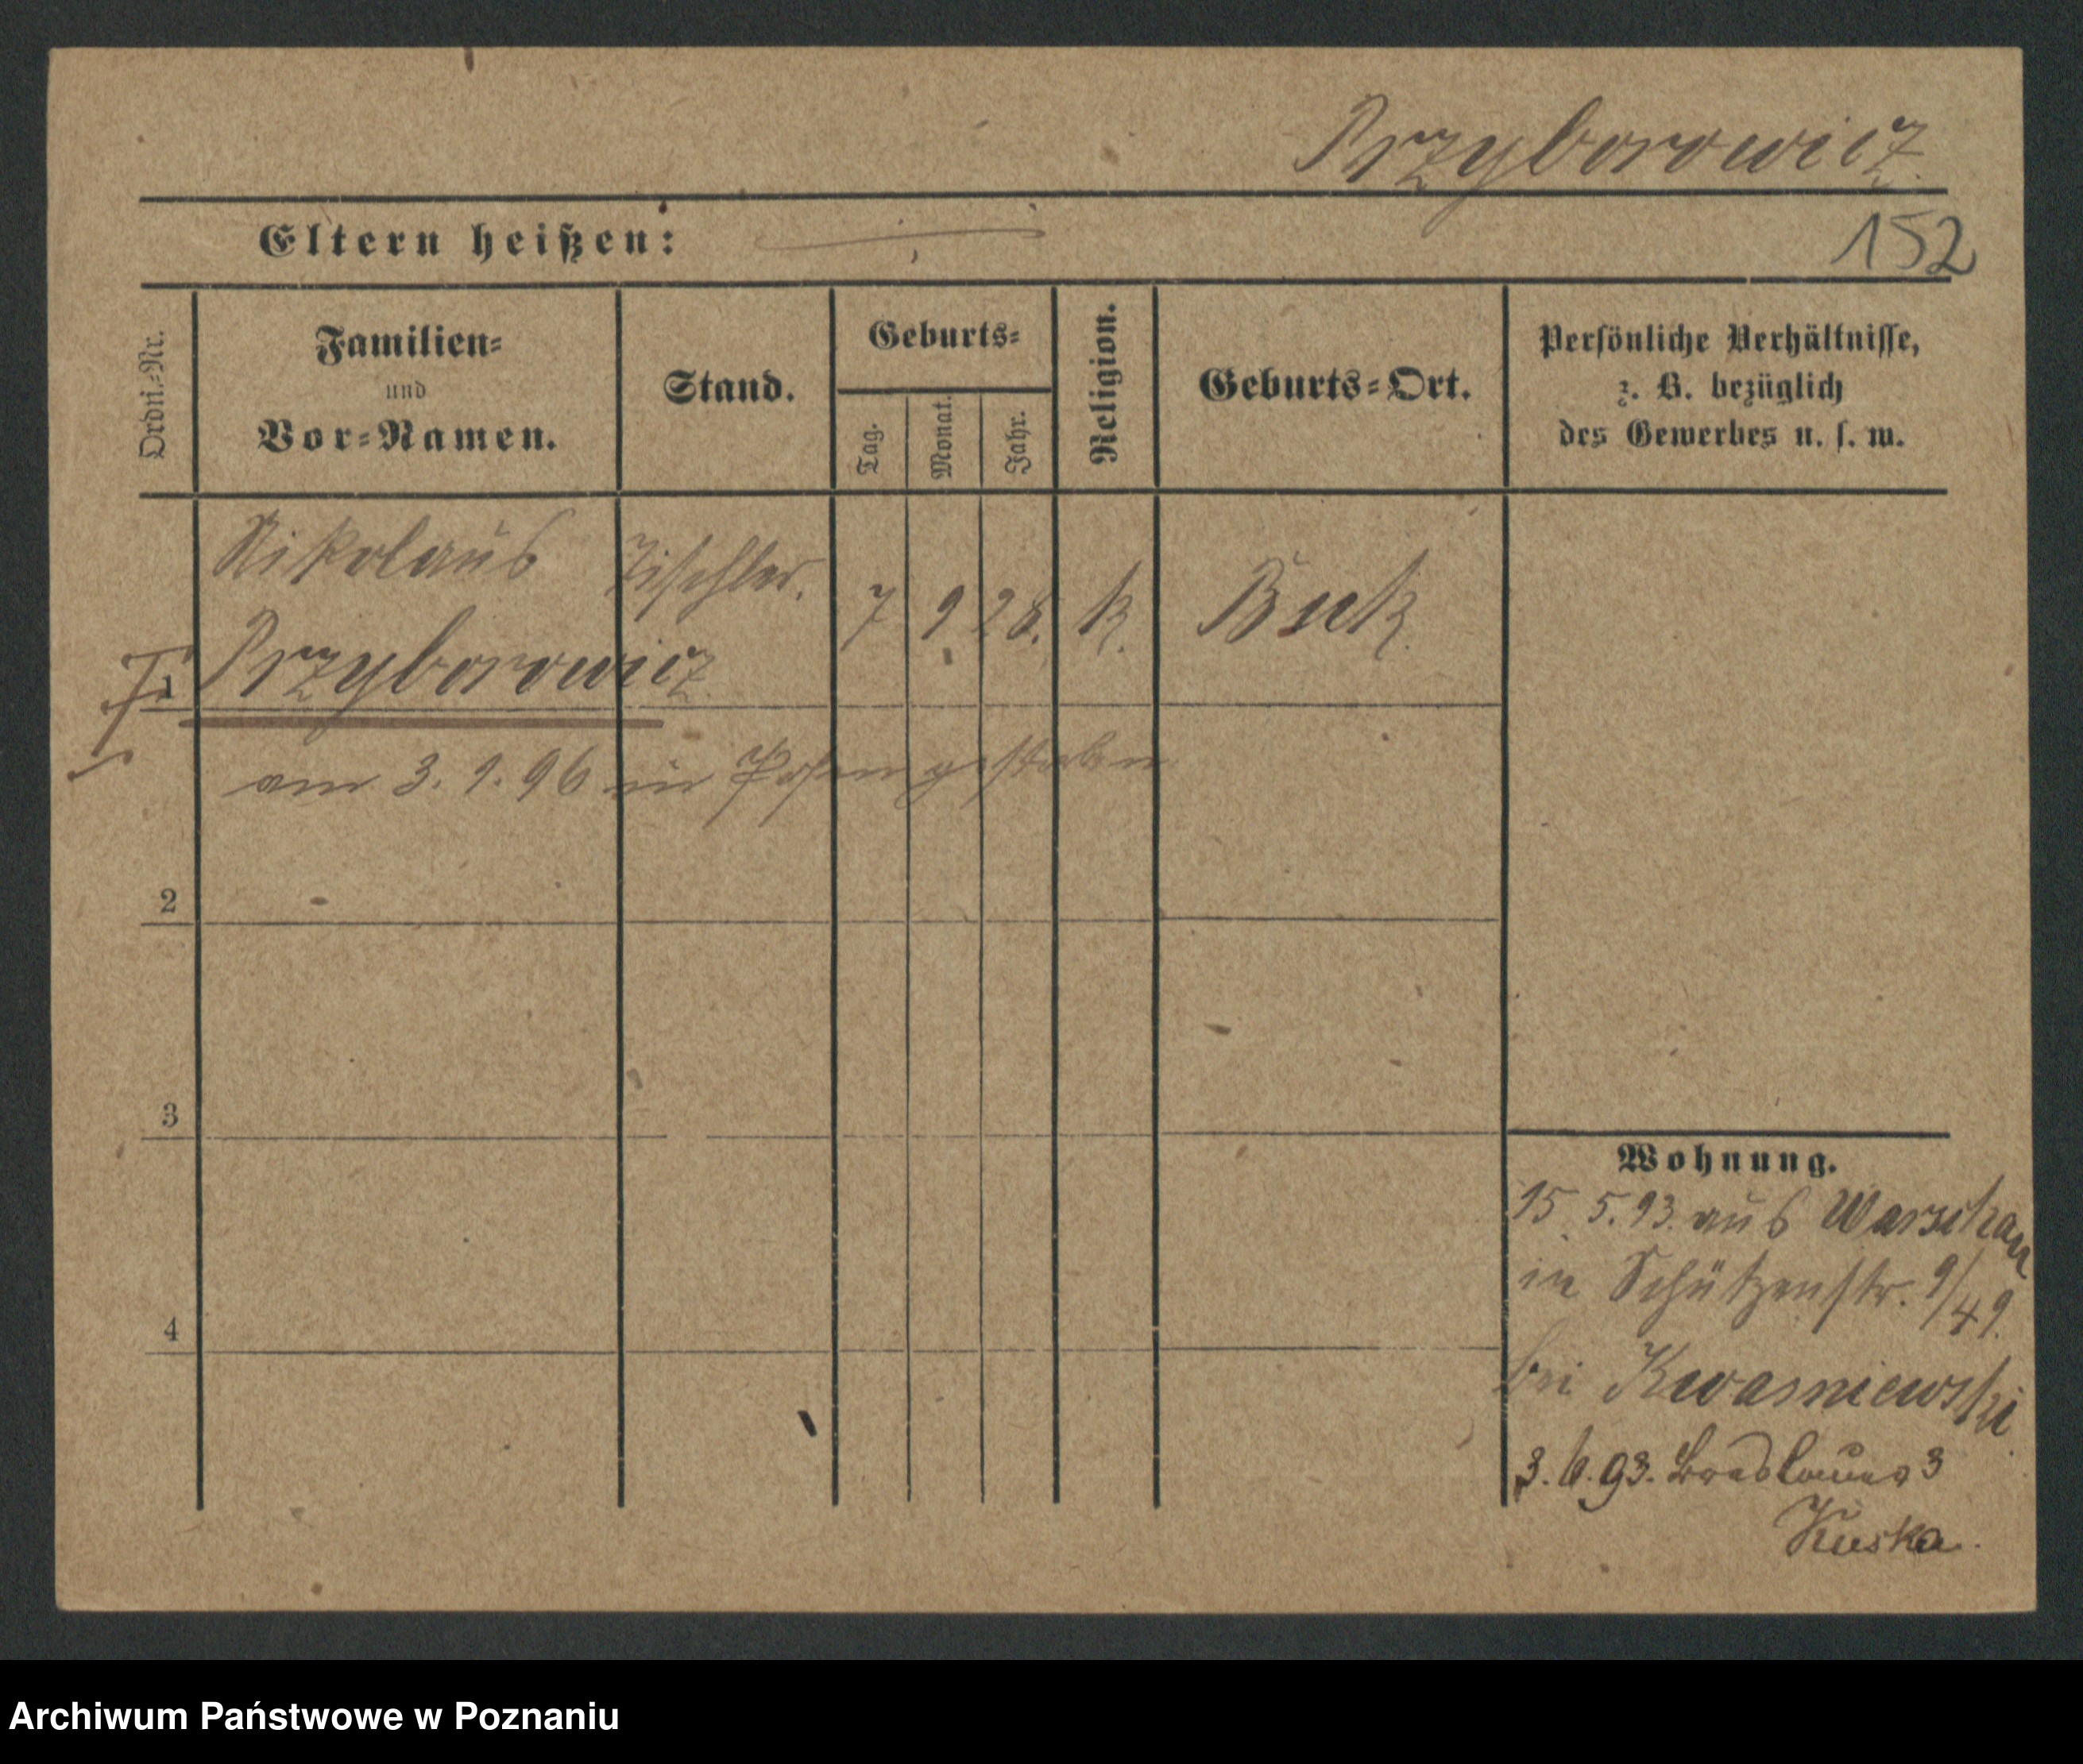 Przyborowicz.
Eltern heißen:
152
Ordn.-Nr.
Familien-
und
Vor-Namen.
Stand.
Geburts-
Tag.
Monat.
Jahr.
Religion.
Geburts-Ort.
Persönliche Verhältnisse,
z. B. bezüglich
des Gewerbes u. s. w.
Nikolaus Tischler.
1 Przyborowicz. 7 9 28. k. Buk
am 3. 1. 96 in Posen gestorben
2
3
4
Wohnung.
15. 5. 93. aus Warschau
in Schützenstr. 9/49.
bei Kwasniewski.
3. 6. 93. Breslauer 3
Kuska.
Archiwum Państwowe w Poznaniu